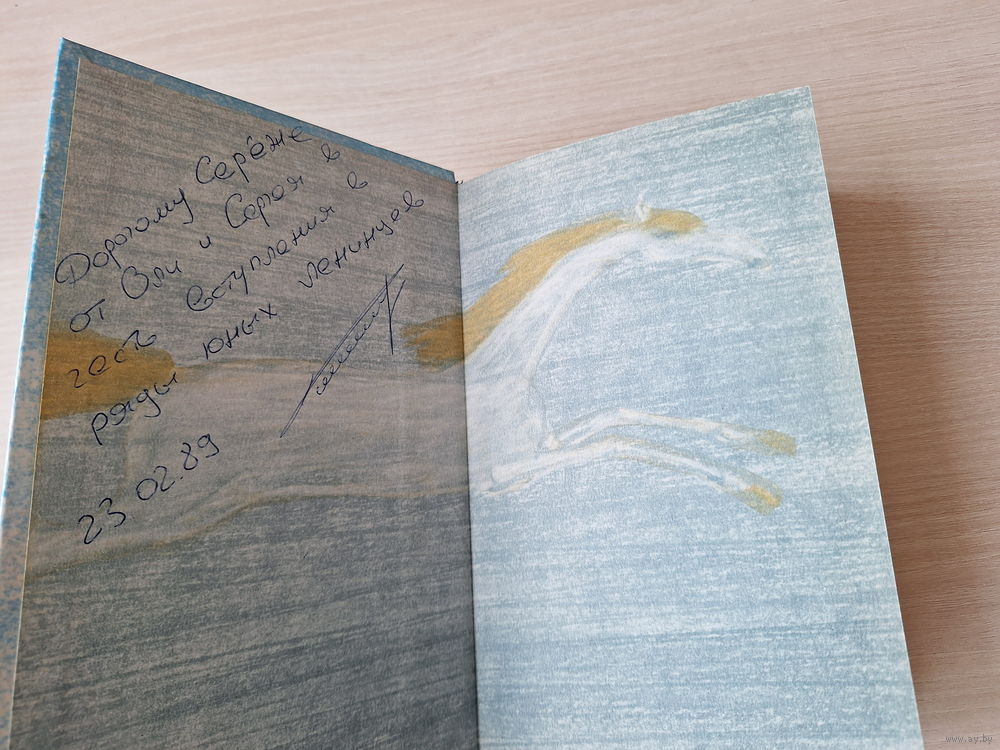 Дорогому Серёже
от Оли и Серёя в
честь вступления в
ряды юных ленинцев
23.02.89
www.ay.by